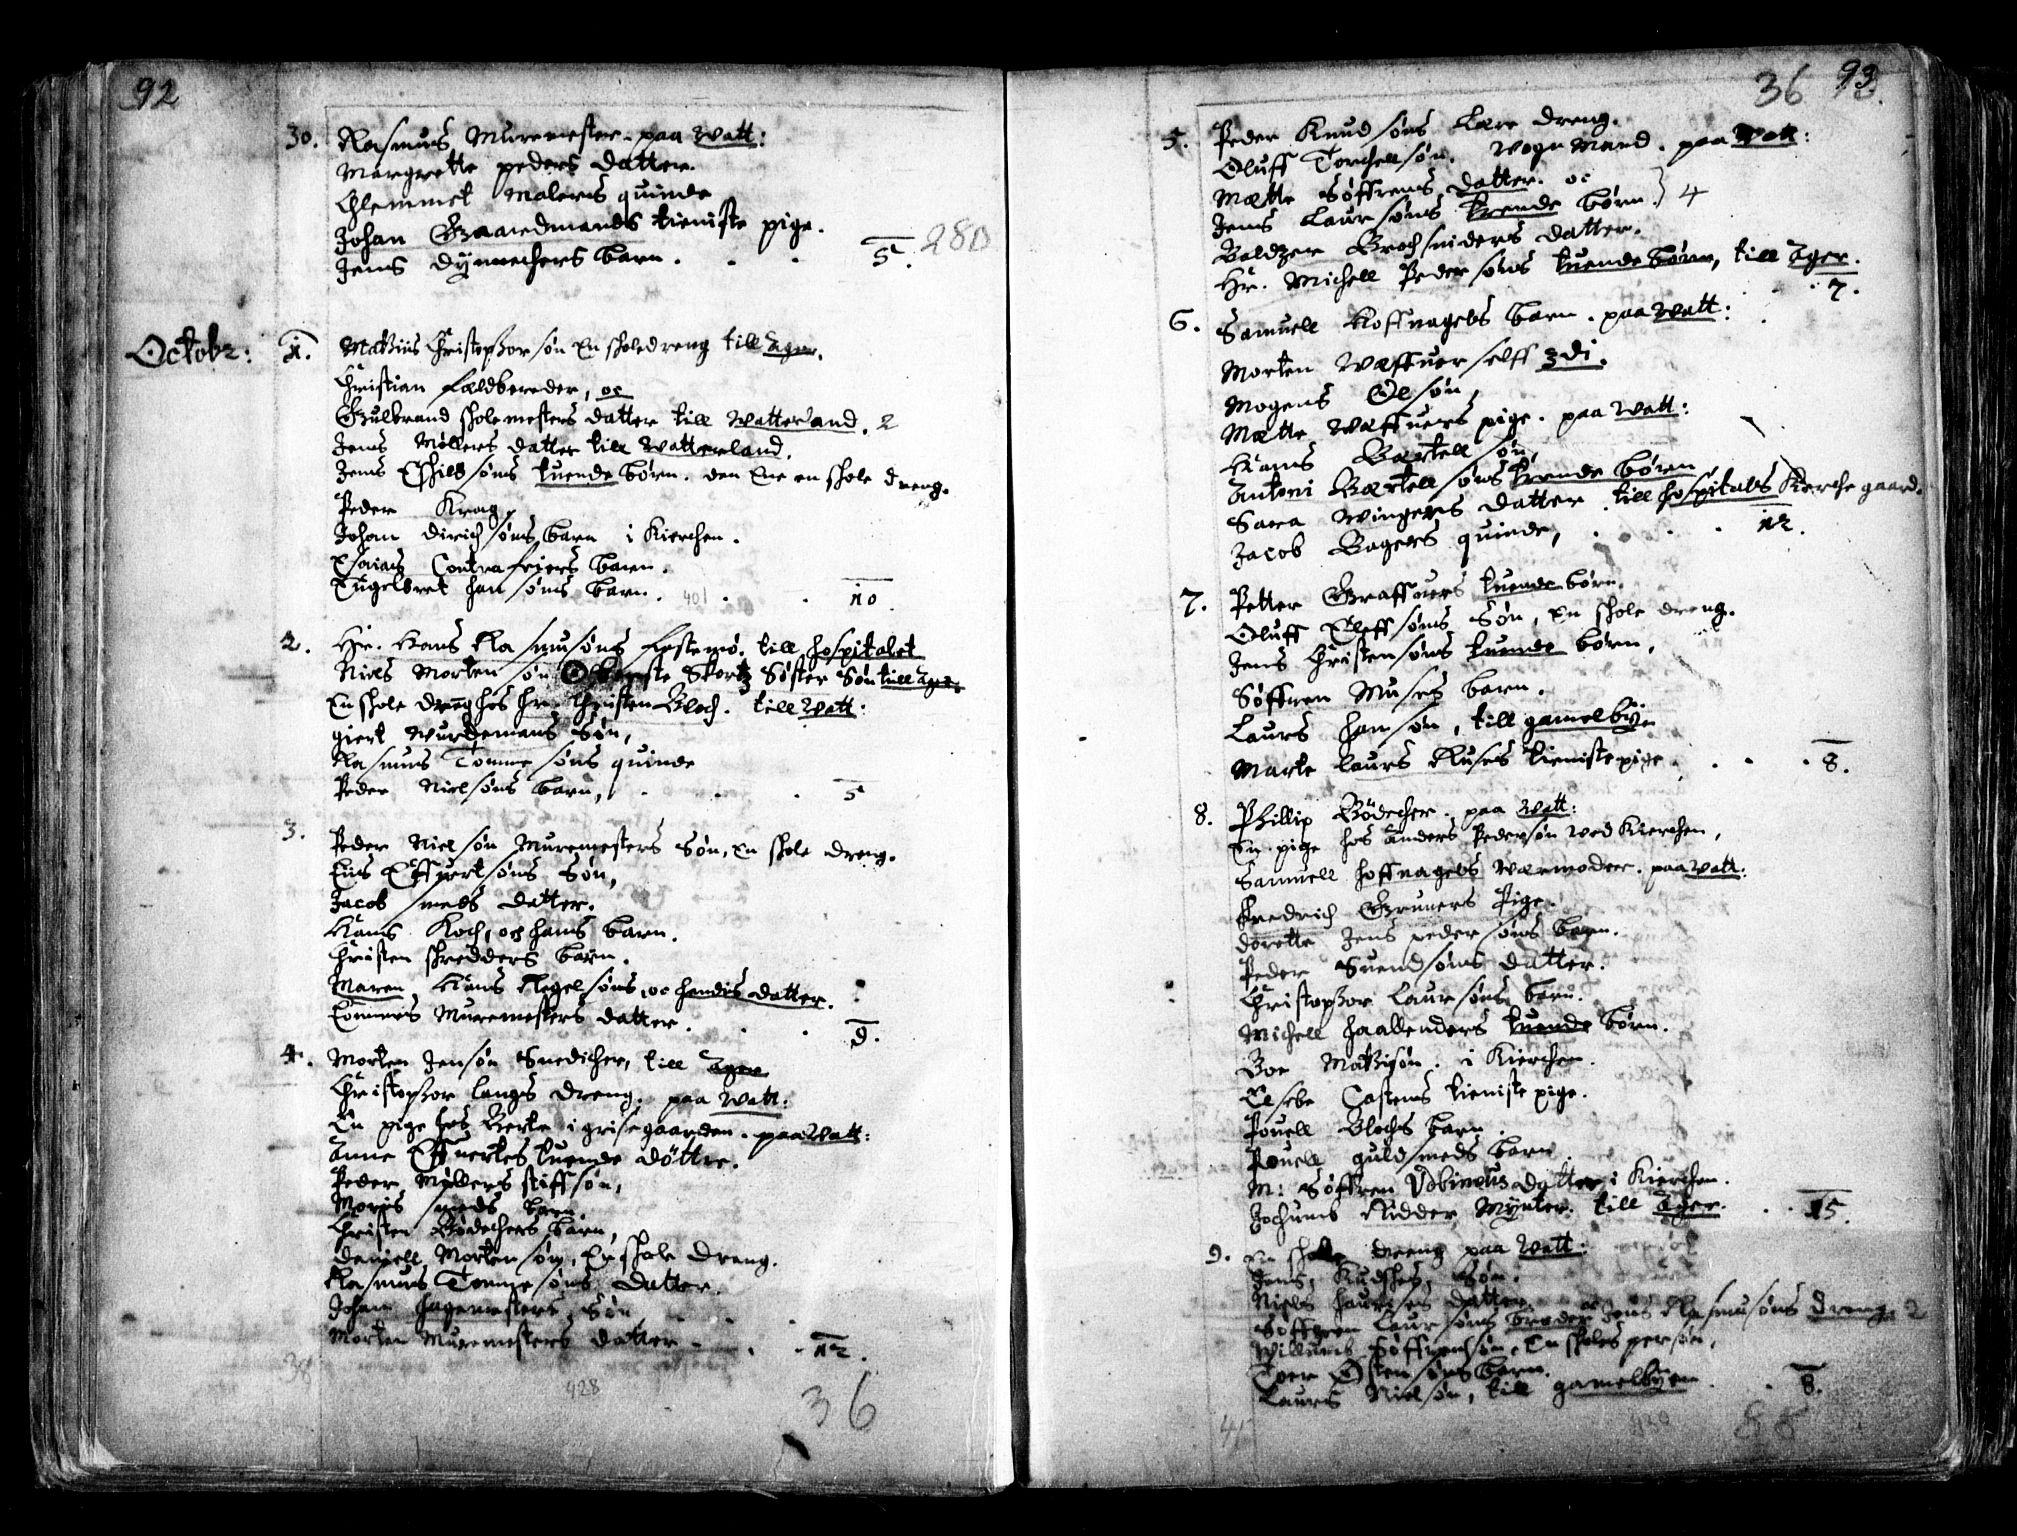 92
30. Rasmus Muremester paa Watt:
Margrette peders datter.
Chlemmet Malers quinde
Johan Gaardmands tieniste pige.
Jens dynnechers barn. 5. 280
Octobr: 1. Mathius Christophersøn En scholedreng till Ager.
Christian Feldbereder, oc
Gulbrand scholemesters datter till Watterland. 2
Jens Møllers datter till Watterland.
Jens Eschilds søns tuende børn. den Ene en schole dreng.
Peder Krag,
Johan dirichsøns barn i Kierchen.
Esaias Contrafeiers barn.
Engelbret Hansøns barn. 401 10.
2. Hr. Hans Rasmusøns festemø. till Hospitalet
Niels Mortensøn Søster Søn till Ager.
En schole dreng hos Hr. Christen Bloch. till Watt:
giert Wurdemans Søn,
Rasmus Tommesøns quinde
Peder Nielsøns barn, 5
3. Peder Nielsøn Muremesters Søn, En schole dreng.
Ens Effuertsøns Søn,
Jacob smeds datter.
Hans Koch, och hans barn.
Christen skredders barn.
Maren Hans Regelsøns, oc hendis datter.
Tommis Muremesters datter. 9.
4. Morten Jensøn Snedicher, till Ager
Christopher langes dreng. paa Watt:
En pige hos Berte i grisegaarden. paa Watt:
Anne Effuertes tuende døttre.
Peder Møllers stiffsøn,
Moris smeds barn.
Christen Bødechers barn,
Daniell Mortensøn, En schole dreng.
Rasmus Tommesøns datter.
Johan hagemesters Søn
Morten Muremesters datter 12.
38
428
36
36 93
5. Peder Knudsøns Lære dreng.
Oluff Torchellsøn. Wogn Mand. paa Watt:
Mætte Søffrens datter. oc
Jens Laursøns trende børn. } 4
Baldzer Brochsniders datter.
Hr. Michell Pedersøns tuende børn, till Ager.
7.
6. Samuell Hoffnagels barn. paa Watt:
Morten Wæffuer selff 3di.
Mogens Olsøn,
Mætte Wæffuers pige. paa Watt:
Hans Bertellsøn,
Antoni Bertellsøns trende børn
Sara Wingers datter. till Hospitals Kierche gaard.
Jacob Bagers quinde, 12.
7. Petter Graffuers tuende børn.
Oluff Eleffsøns Søn, En schole dreng.
Jens Christensøns tuende børn,
Søffren Muses barn.
Laurs Hansøn, till gamelby.
Marte Laurs Ruses tienistepige. 8.
8. Phillip Bødecher. paa Watt:
En pige hos Anders Pedersøn wed Kierchen,
Samuell Hoffnagels Wærmoder. paa Watt:
Fredrich Gruners Pige.
dorette Jens pedersøns barn.
Peder Suendsøns datter.
Christopher Laursøns barn.
Michell Haallenders tuende børn.
Boe Mathisøn. i Kierchen.
Elsebe Castens tieniste pige.
Pouell Blochs barn.
Pouell guldsmeds barn.
M: Søffren datter i Kierchen.
Jochum Ridder Mynter. till Ager. 15.
9. En schole dreng paa Watt:
Jens Søn.
Niels datter.
Søffren Laursøns broder oc Jens Rasmusøns dreng. 2
Willumb Søffrensøn, En scholes persøn,
Toer Østensøns barn.
Laurs Nielsøn, till gamelbyen 8.
41
430
88